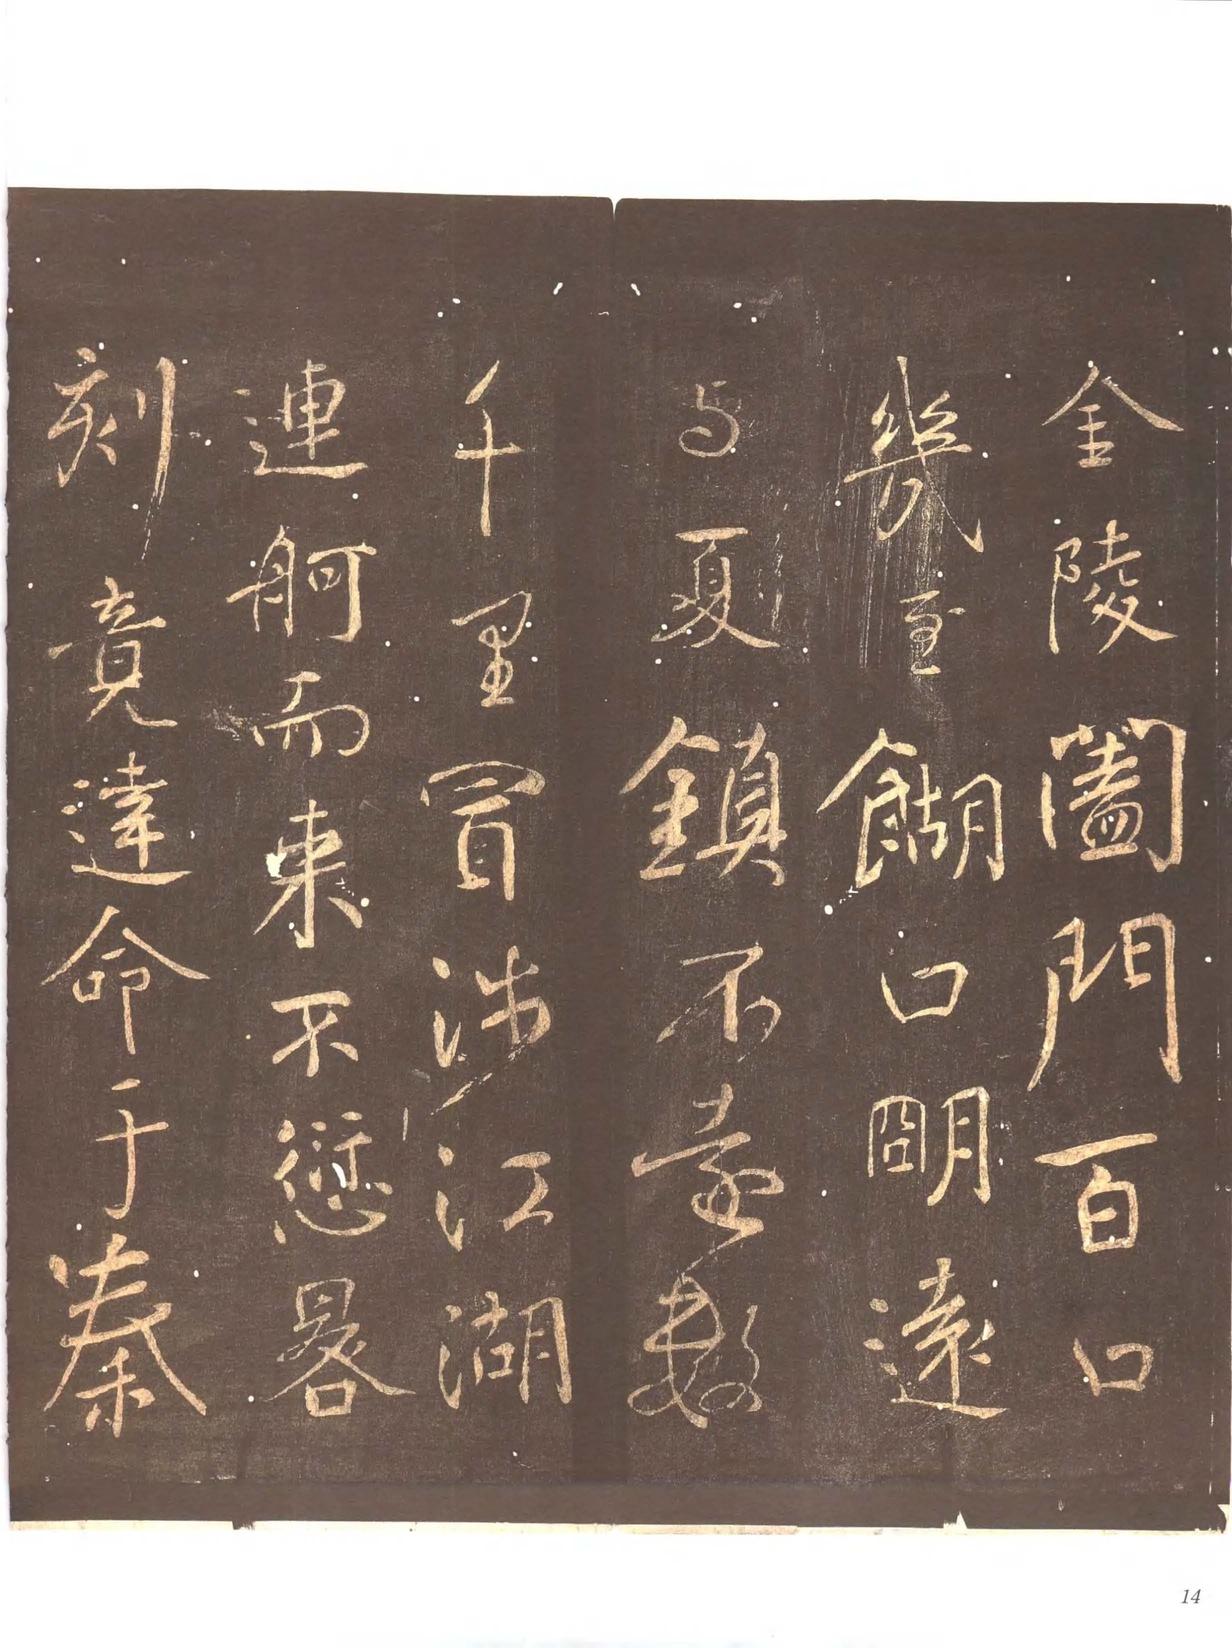 金陵闔門百口
幾至餬口明遠
与夏鎮不遠數
千里冒涉江湖
連舸而來不愆晷
刻竟達命于秦
14